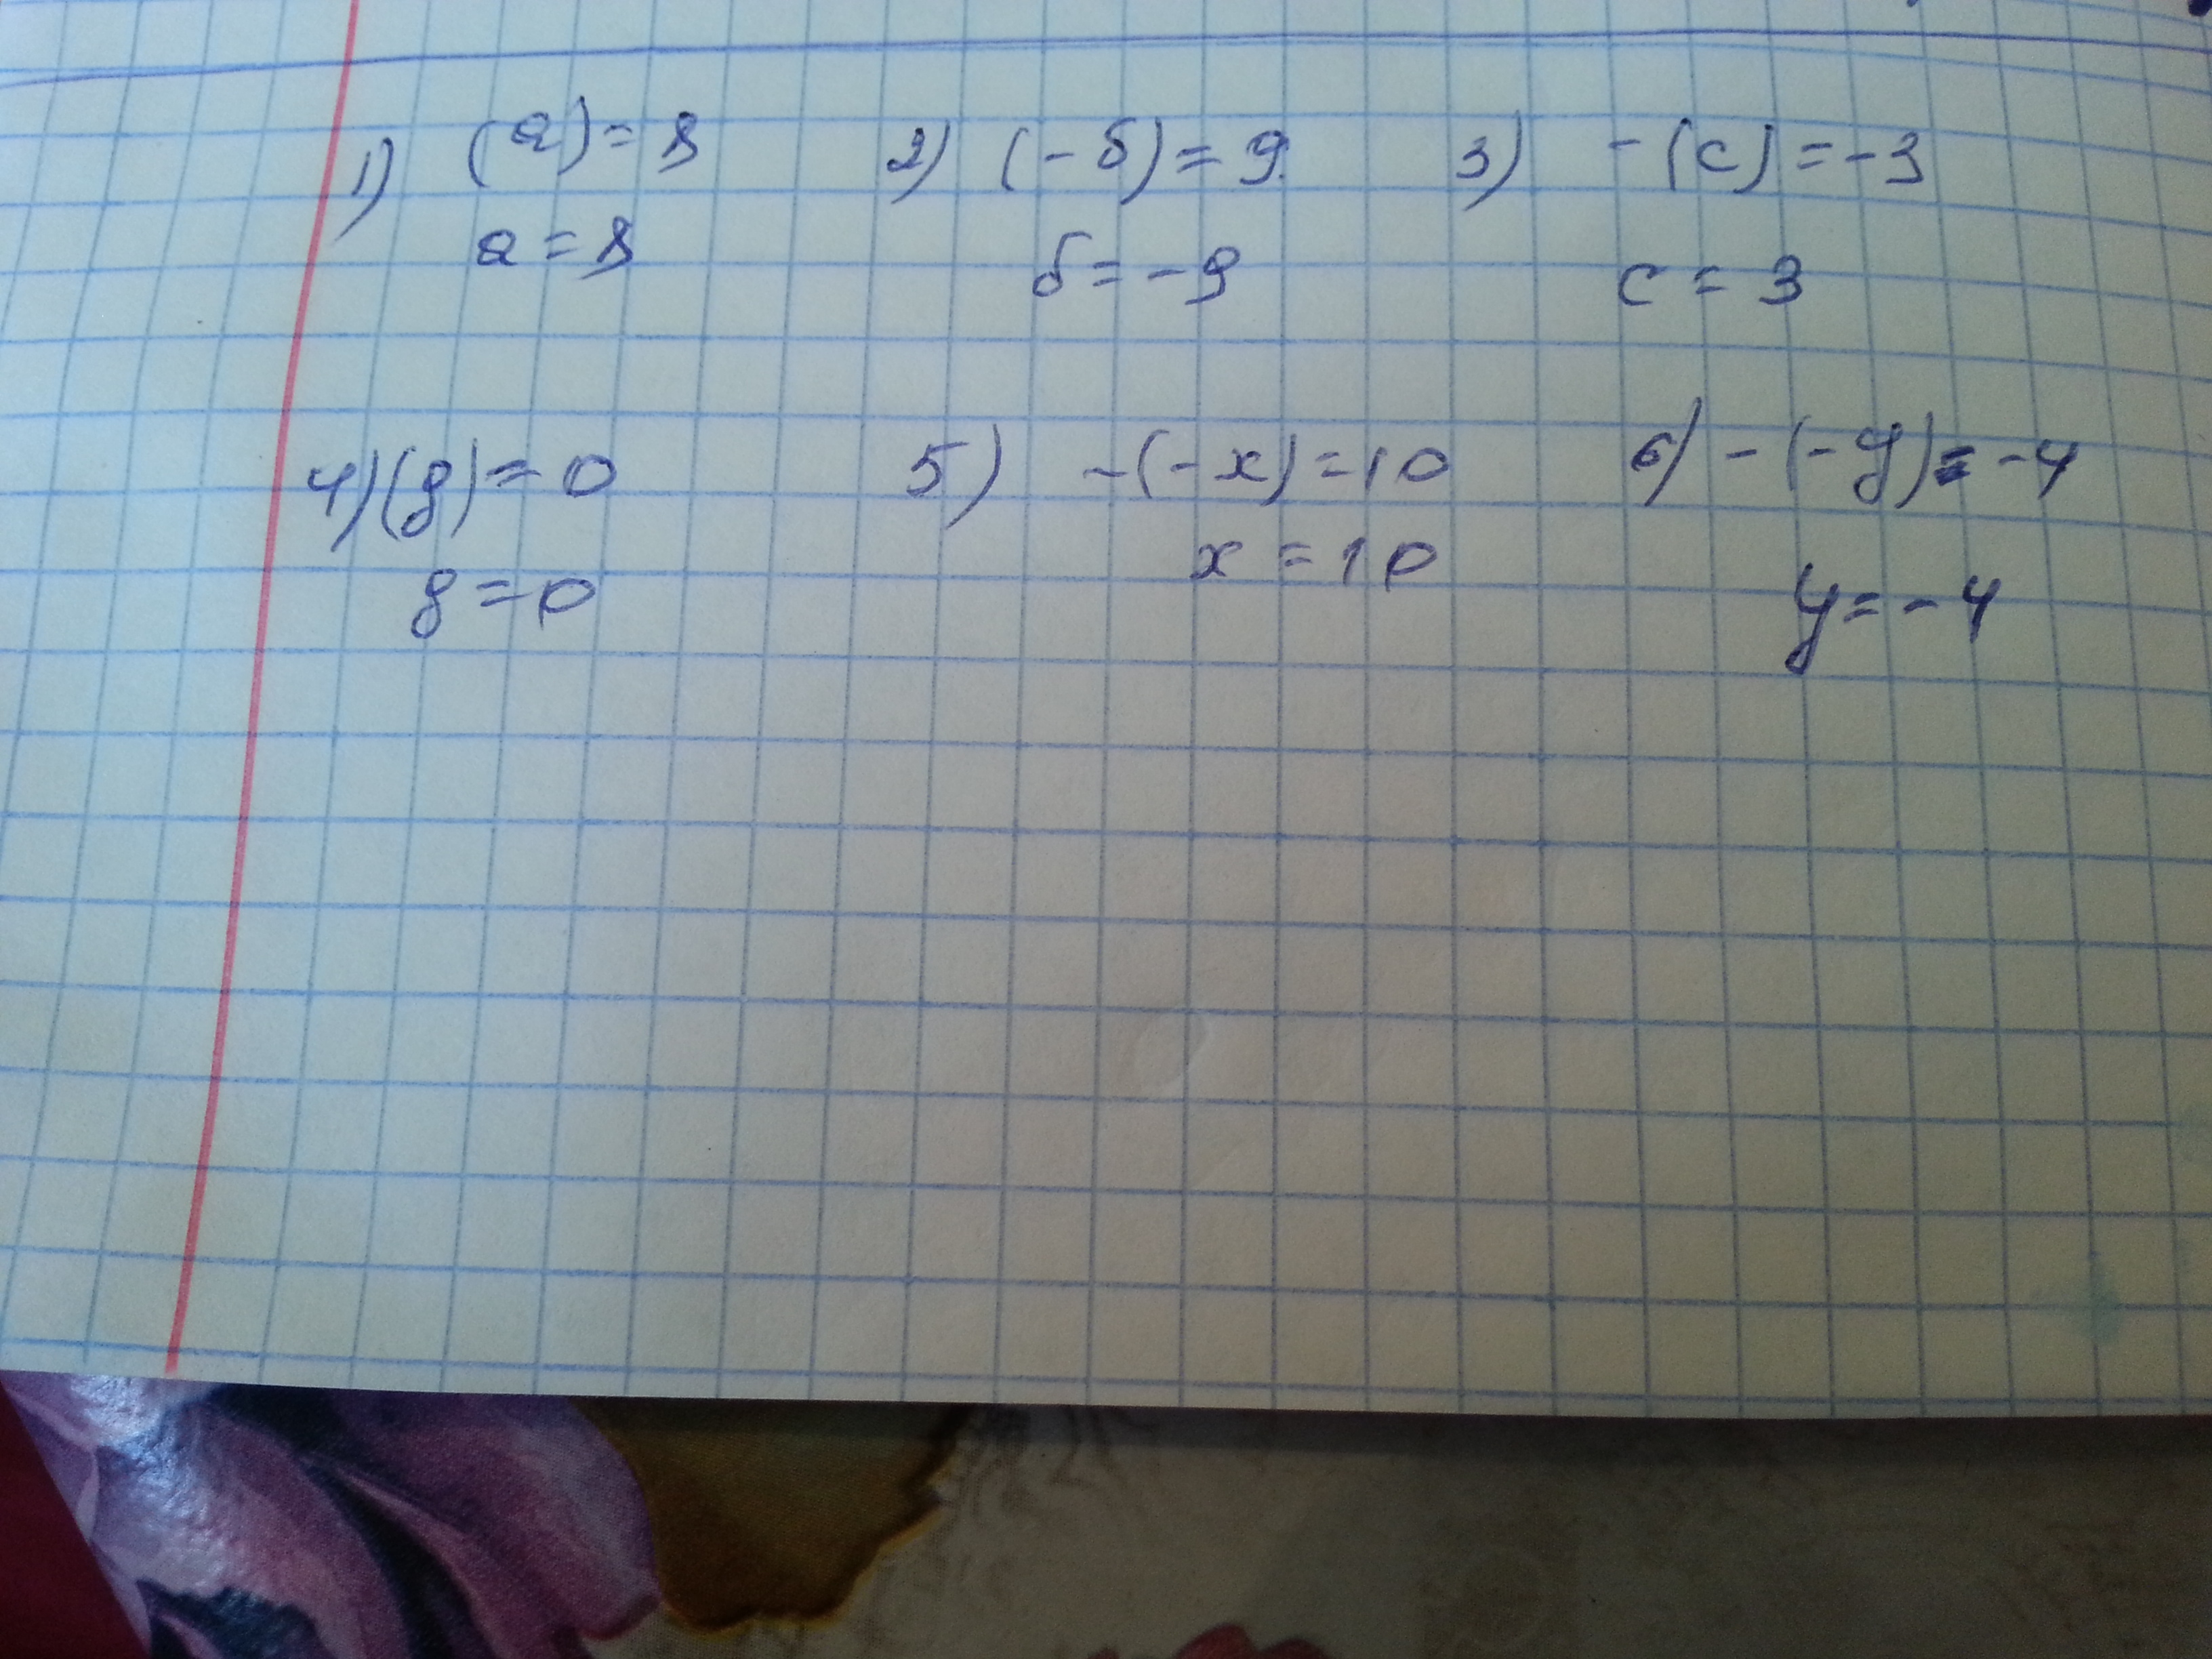 1) (a) = 8 2) (- б) = 9 3) - (c) = -3
a = 8 б = -9 c = 3
4) (g) = 0 5) -(-x) = 10 6) - (-y) = -4
g = 0 x = 10 y = -4